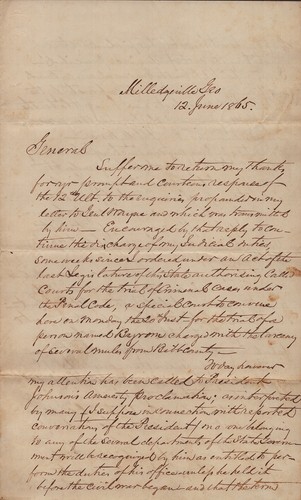 Milledgeville Geo
12. June 1865.
General
Suffer me to return my thanks
for yr prompt and courteous response of
the 12th Ult. to the enquiries, propounded in my
letter to Genl and which was transmitted
by him — Encouraged by the reply to con
tinue the discharge of my Judicial duties,
some weeks since I ordered under an Act of the
last Legislature of this State authorising Called
Courts for the trial of Criminal Cases, under
the Penal Code, a Special Court to convene
here on Monday the 20 Inst for the trial of a
person named Byrom charged with the larceny
of several mules from Bibb County —
To day however
my attention has been called to President
Johnson's Amnesty Proclamation; as interpreted
by many (I suppose in connection with reported
conversations of the President) no one belonging
to any of the several departments of the State Govern
ment will be recognized by him as entitled to per
form the duties of his office unless he held it
before the Civil war began and that the term